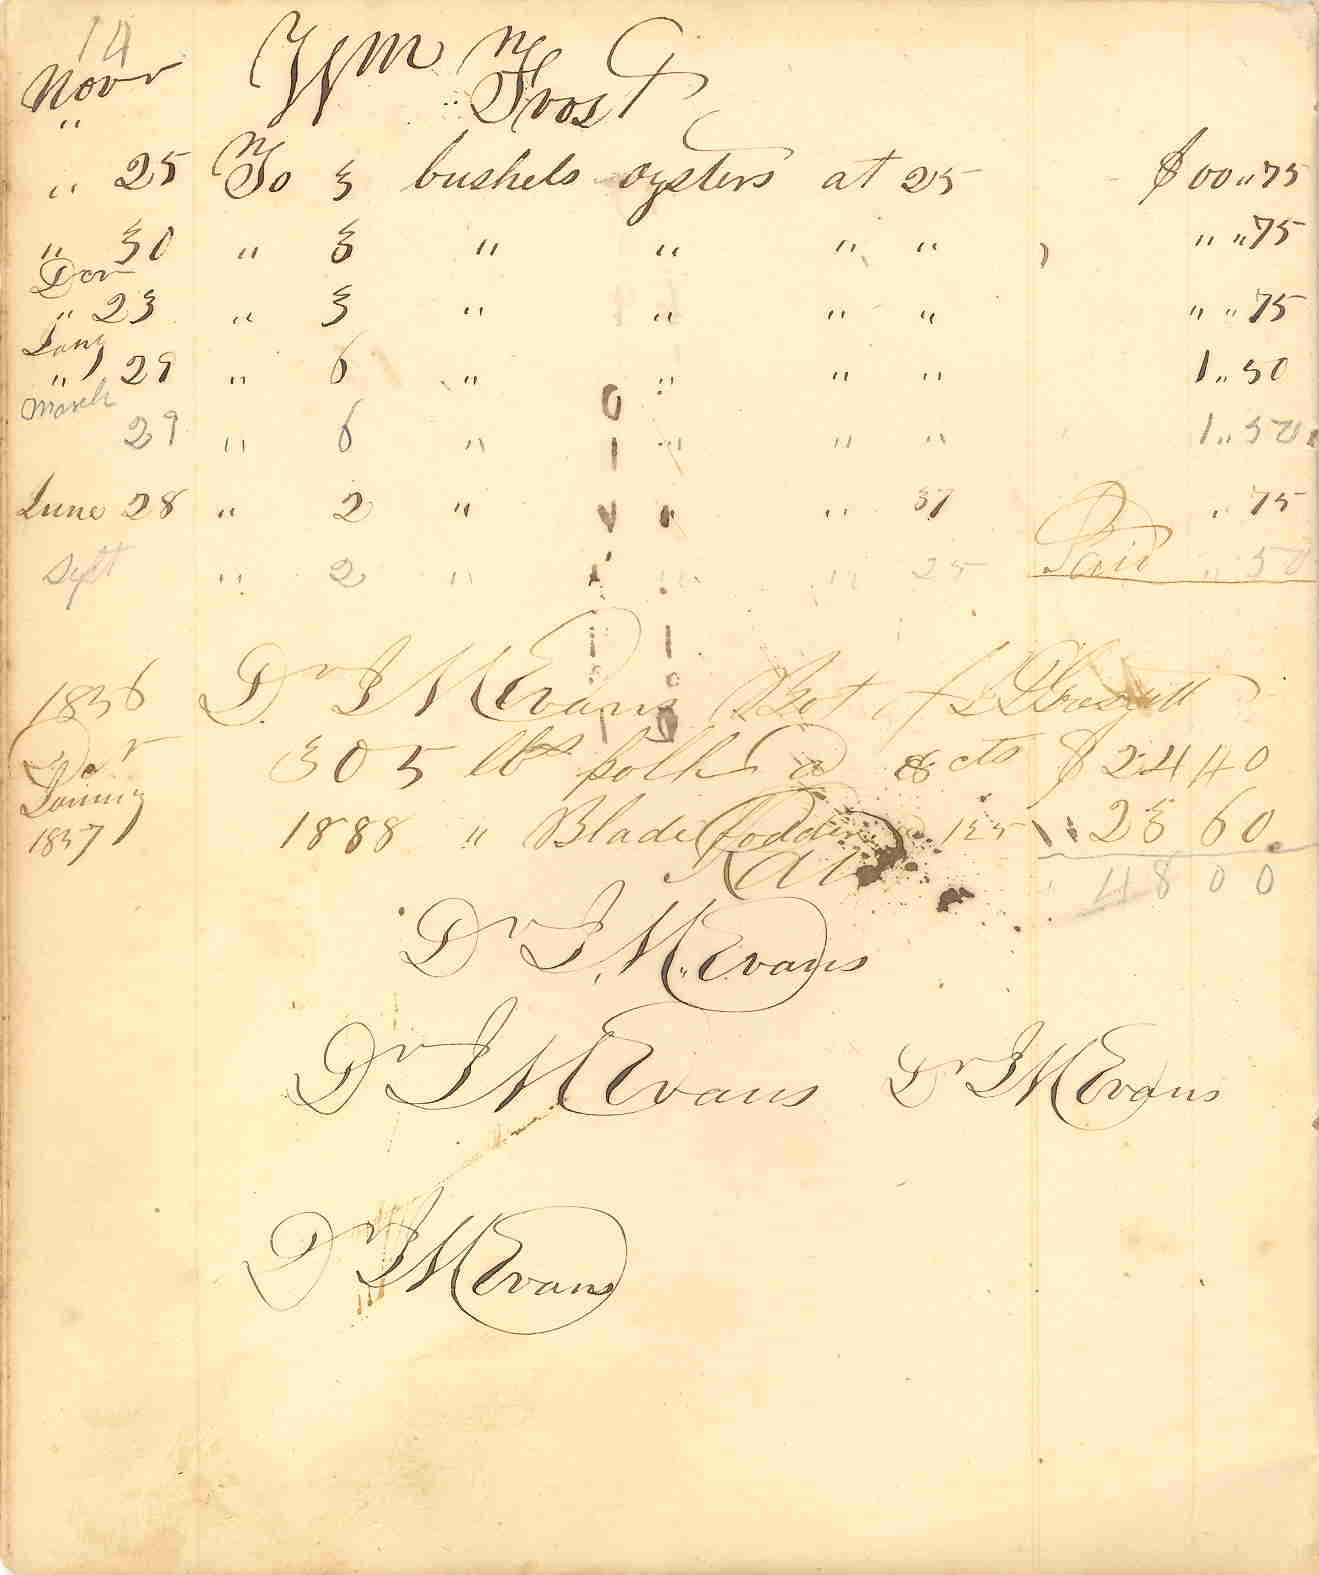 14
Novr Wm Frost
"
" 25 To 3 bushels oysters at 25 $ 00 " 75
" 30 " 3 " " " " " " 75
Decr
" 23 " 3 " " " " " " 75
Jany
" 29 " 6 " " " " 1 " 50
March
29 " 6 " " " " 1 " 50
June 28 " 2 " " " 37 " 75
Sept " 2 " " " 25 Paid " 50
1836 Dr J M Evans Bot of
Decr 305 lbs polk @ 8 cts $ 24 40
January
1837 1888 " Blade fodder 125 " 23 60
" 48 00
Dr J. M. Evans
Dr J M Evans Dr J M Evans
Dr J M Evans